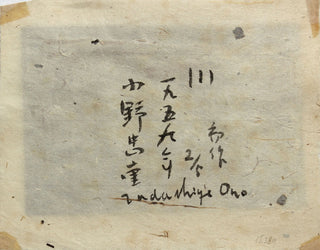 川
初作
2/5
一九五九年
小野忠重
Tadashige Ono